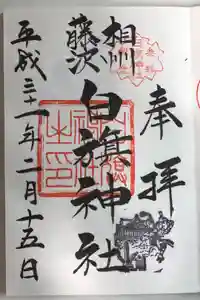 奉拝
相州
藤沢
白旗神社
平成三十一年二月十五日